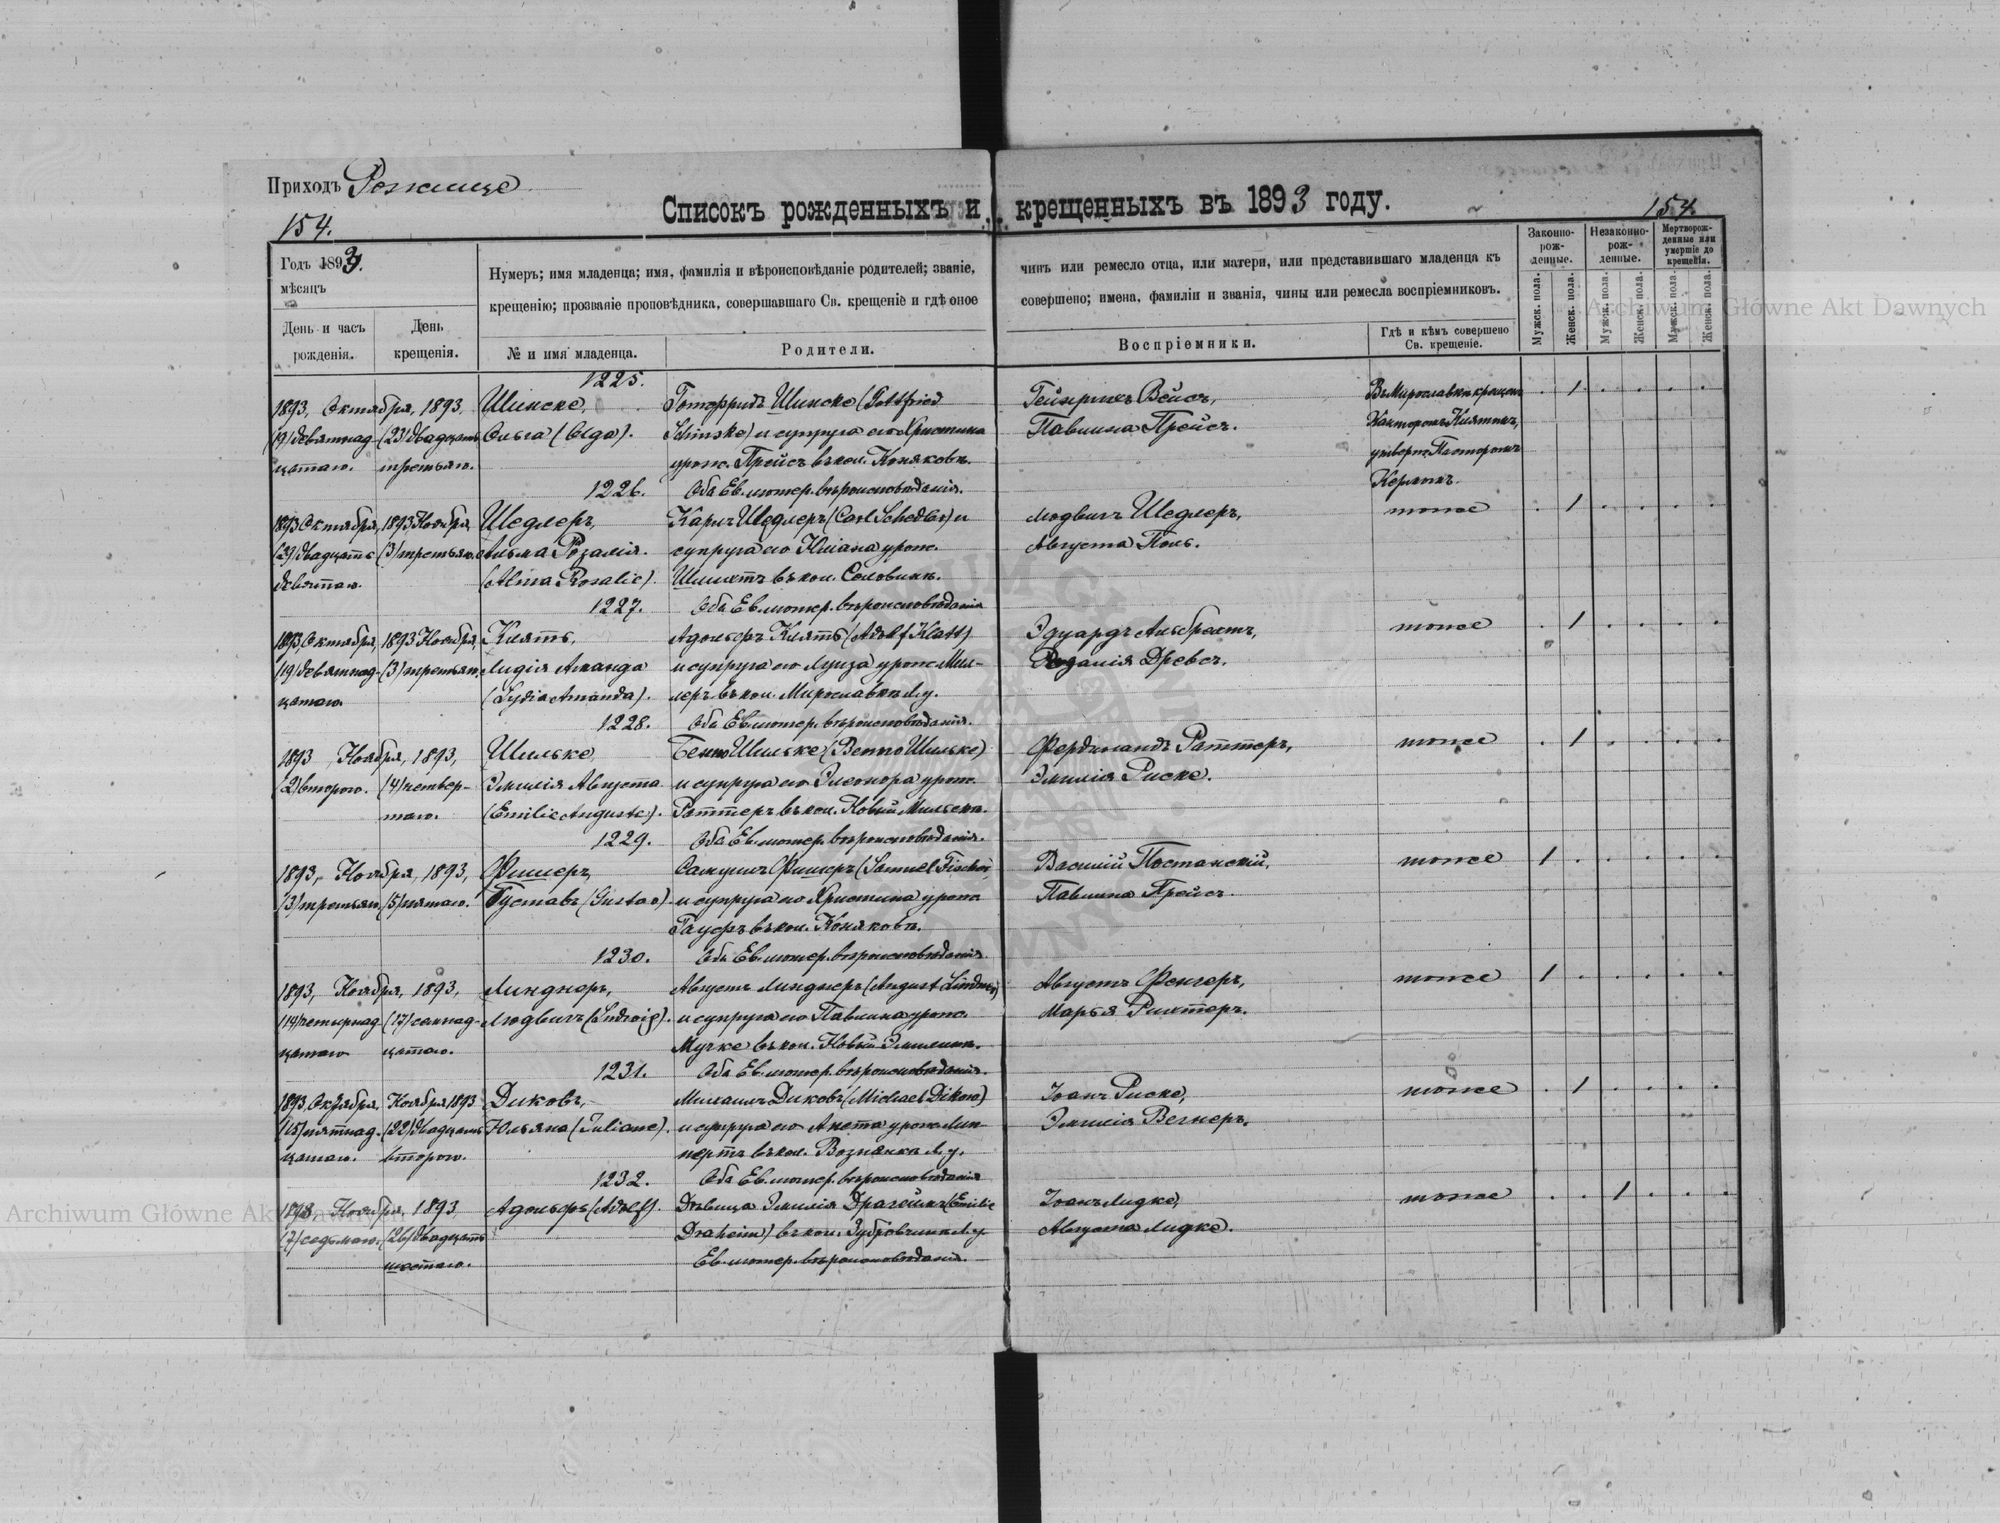 Приходъ Рожище
154.
Списокъ рожденныхъ и крещенныхъ въ 1893 году.
154.
Годъ 1893.
мѣсяцъ
День и часъ рожденія.
День крещенія.
Нумеръ; имя младенца; имя, фамилія и вѣроисповѣданіе родителей; званіе, чинъ или ремесло отца, или матери, или представившаго младенца къ
крещенію; прозваніе проповѣдника, совершавшаго Св. крещеніе и гдѣ оное совершено; имена, фамиліи и званія, чины или ремесла воспріемниковъ.
№ и имя младенца.
Родители.
Воспріемники.
Гдѣ и кѣмъ совершено Св. крещеніе.
Законно-рож-денные.
Незаконно-рож-денные.
Мертворож-денные или умершіе до крещенія.
Мужск. пола.
Женск. пола.
Мужск. пола.
Женск. пола.
Мужск. пола.
Женск. пола.
1225.
1893, Октября, 1893, Шинске, Готфридъ Шинске (Gottfried Гейнрихъ Вейсъ, Въ Мирославкѣ крещенъ 1
(19) девятнад- (23) двадцать Ольга (Olga). Schinske) и супруга его Христина Павлина Прейсъ. Канторомъ Клятомъ,
цатаго. третьяго. урож. Прейсъ въ кол. Коняковъ. утверж. Пасторомъ
1226. Оба Ев. лютер. вѣроисповѣданія. Кермомъ.
1893 Октября, 1893 Ноября, Шедлеръ, Карлъ Шедлеръ (Carl Schedler) и Людвигъ Шедлеръ, тоже 1
(29) двадцать (3) третьяго Альма Розалія. супруга его Юліана урож. Августа Поль.
девятаго. (Alma Rosalie). Шлихтъ въ кол. Соловинъ.
1227. Оба Ев. лютер. вѣроисповѣданія
1893 Октября, 1893 Ноября, Клятъ, Адольфъ Клятъ (Adolf Klatt) Эдуардъ Альбрехтъ, тоже 1
(19) девятнад- (3) третьяго. Лидія Аманда и супруга его Луиза урож. Мил- Розалія Древсъ.
цатаго. (Lydia Amanda). леръ въ кол. Мирославкѣ Л. у.
1228. Оба Ев. лютер. вѣроисповѣданія.
1893 Ноября, 1893, Шильке, Бенно Шильке (Benno Шильке) Фердинандъ Раттеръ, тоже 1
(2) второго. (4) четвер- Эмилія Августа и супруга его Элеонора урож. Эмилія Риске.
таго. (Emilie Auguste). Раттеръ въ кол. Новый
1229. Оба Ев. лютер. вѣроисповѣданія.
1893, Ноября, 1893, Фишеръ, Самуилъ Фишеръ (Samuel Fischer) Василій Постанскій, тоже 1
(3) третьяго. (5) пятаго. Густавъ (Gustav) и супруга его Христина урож. Павлина Прейсъ.
Гауфъ въ кол. Коняковъ.
1230. Оба Ев. лютер. вѣроисповѣданія.
1893, Ноября, 1893, Линднеръ, Августъ Линднеръ (August Lindner) Августъ Фенгеръ, тоже 1
(14) четырнад- (17) семнад- Людвигъ (Ludwig). и супруга его Павлина урож. Марья Рихтеръ.
цатаго цатаго. въ кол. Новый
1231. Оба Ев. лютер. вѣроисповѣданія.
1893, Октября, Ноября 1893 Диковъ, Михаилъ Диковъ (Michael Dikow) Іоанъ Риске, тоже 1
(15) пятнад- (22) двадцать Юльяна (Juliane). и супруга его Анета урож. Лин- Эмилія Вегнеръ.
цатаго. второго. нертъ въ кол. Вознянка Л. у.
1232. Оба Ев. лютер. вѣроисповѣданія
1893, Ноября, 1893, Адольфъ (Adolf). Дѣвица Эмилія Драгеймъ (Emilie Іоанъ Лидке, тоже 1
(7) седьмаго. (26) двадцать Draheim) въ кол. Л. у. Августа Лидке.
шестаго. Ев. лютер. вѣроисповѣданія.
Archiwum Główne Akt Dawnych
Archiwum Główne Akt Dawnych